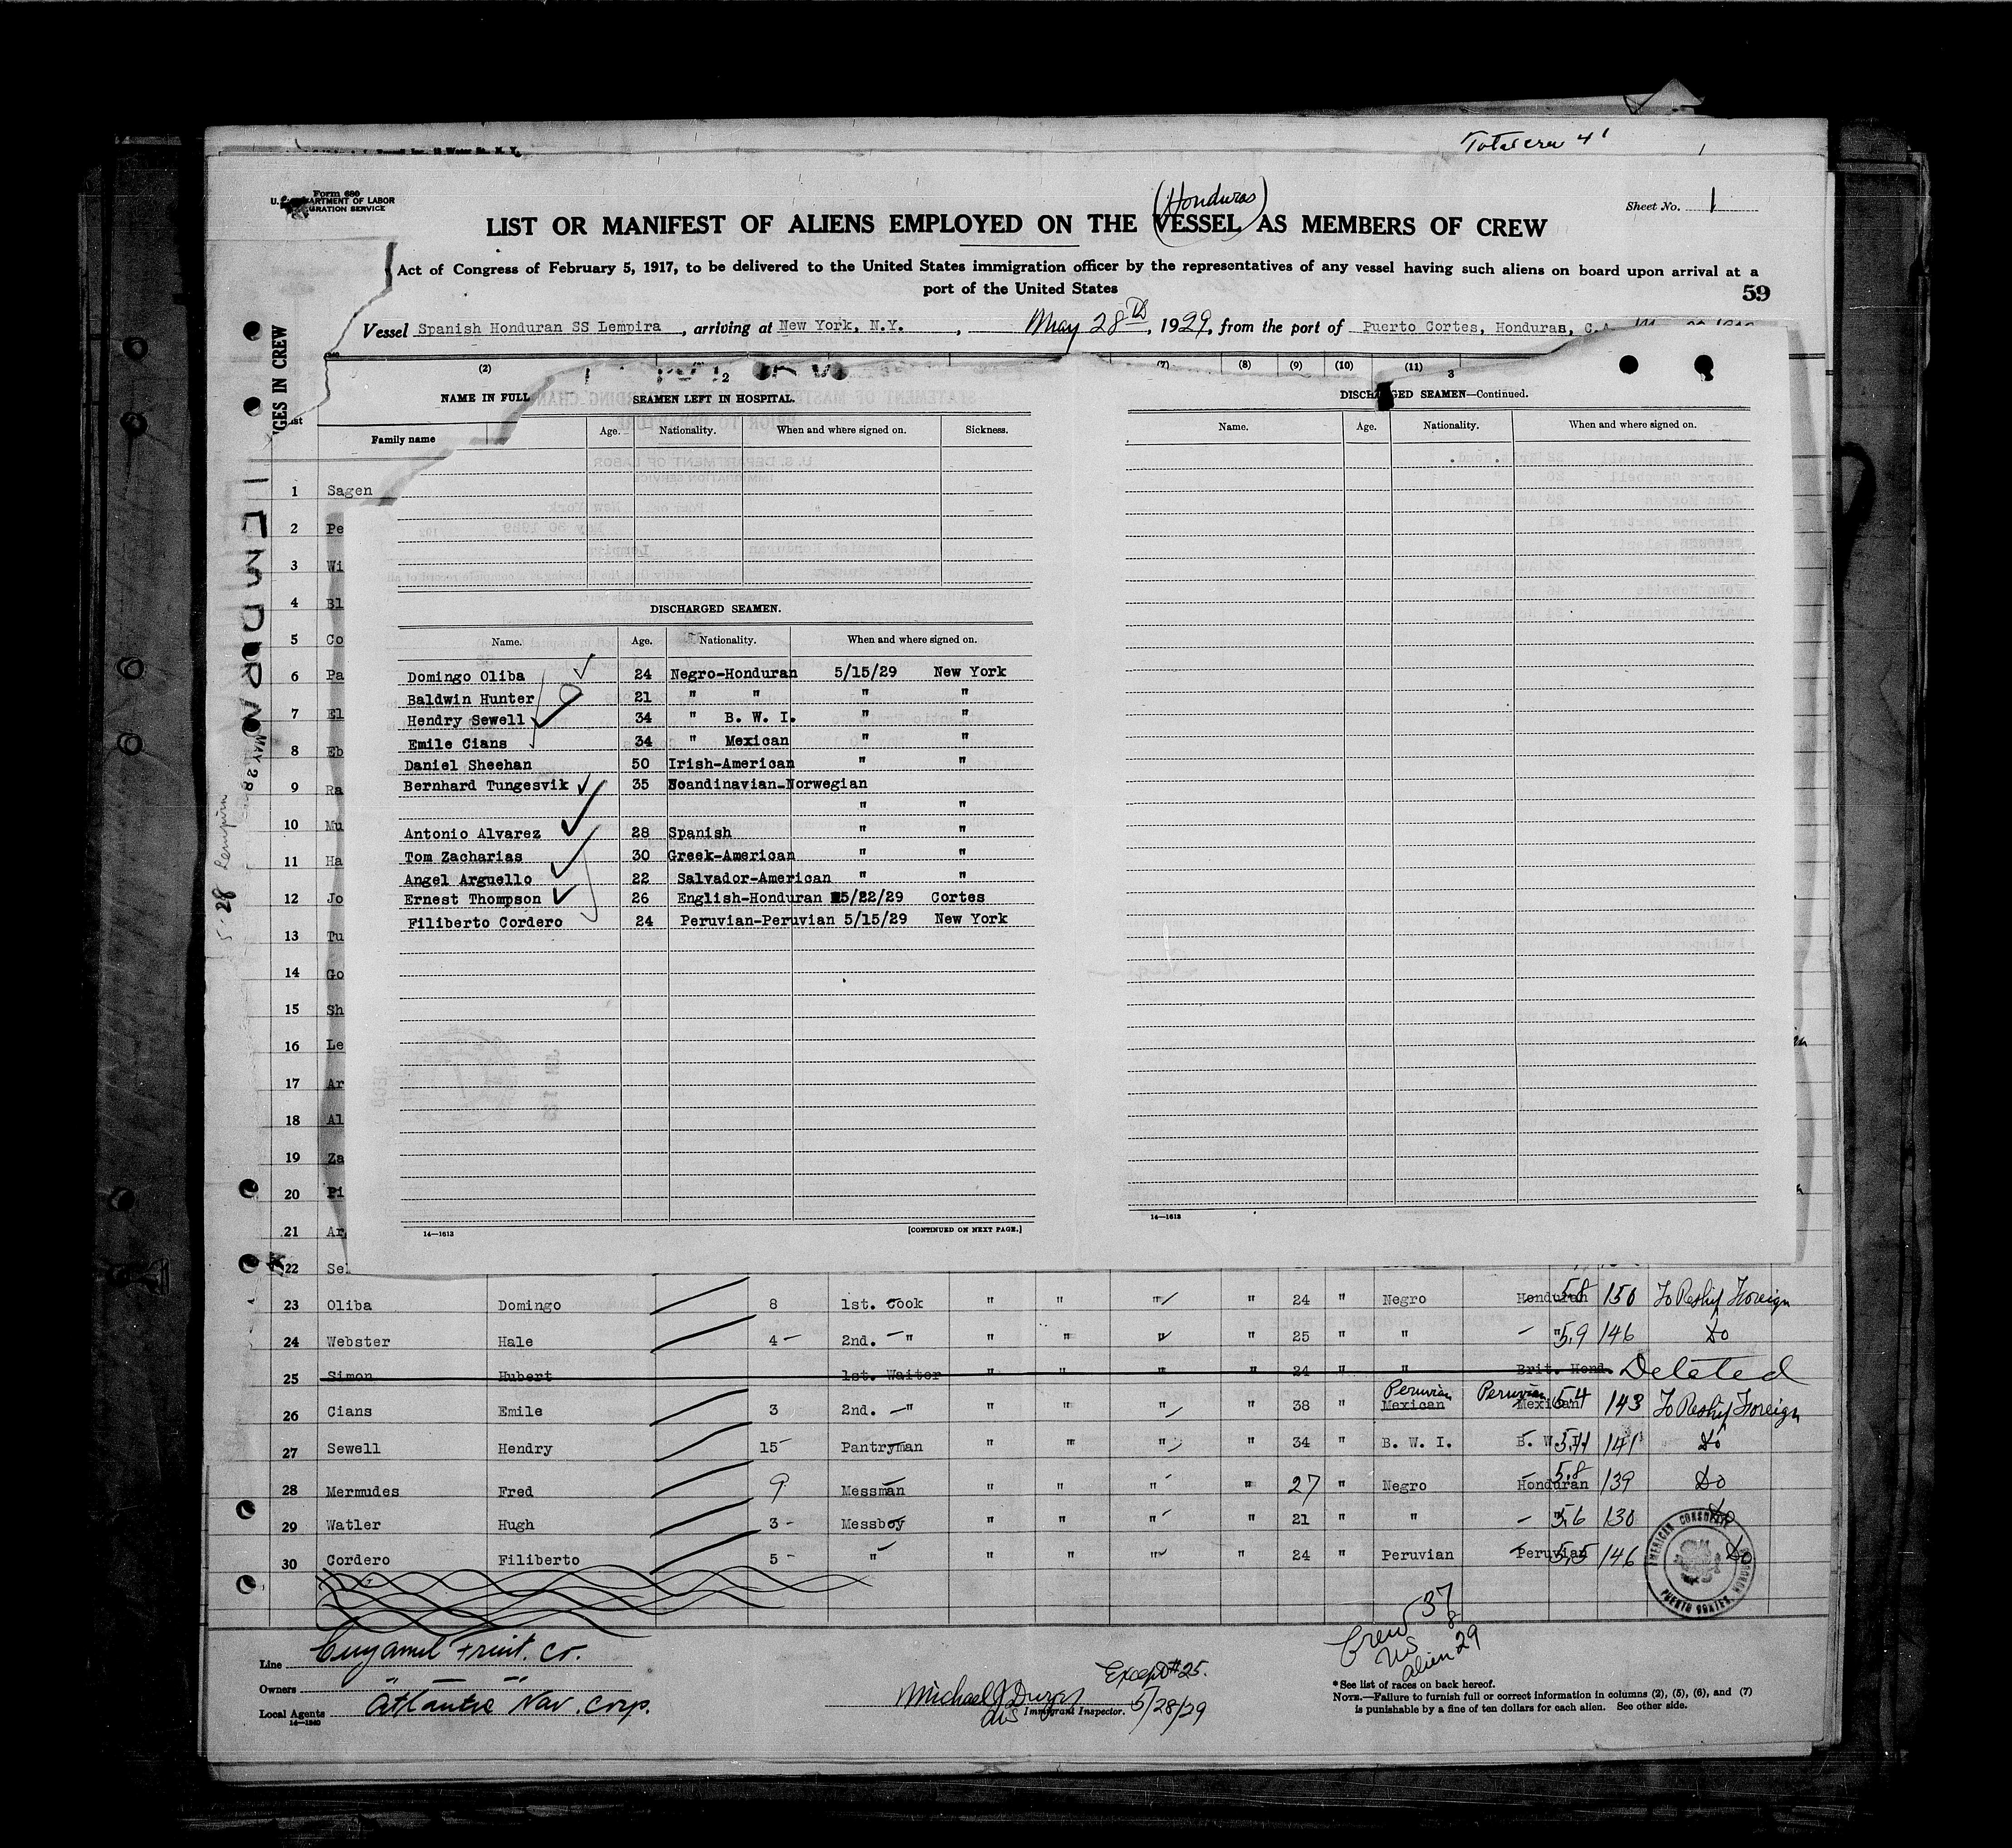 Total crew 41
Form 680
U. S. DEPARTMENT OF LABOR
IMMIGRATION SERVICE
Sheet No. 1
(Honduras)
LIST OR MANIFEST OF ALIENS EMPLOYED ON THE VESSEL AS MEMBERS OF CREW
Act of Congress of February 5, 1917, to be delivered to the United States immigration officer by the representatives of any vessel having such aliens on board upon arrival at a
port of the United States
59
Vessel Spanish Honduran SS Lempira, arriving at New York, N.Y., May 28th, 1929, from the port of Puerto Cortes, Honduras, C.A.
(2) (7) (8) (9) (10) (11)
NAME IN FULL
Family name
2
SEAMEN LEFT IN HOSPITAL.
Age. Nationality. When and where signed on. Sickness.
DISCHARGED SEAMEN.
Name. Age. Nationality. When and where signed on.
Domingo Oliba 24 Negro-Honduran 5/15/29 New York
Baldwin Hunter 21 " " " "
Hendry Sewell 34 " B. W. I. " "
Emile Cians 34 " Mexican " "
Daniel Sheehan 50 Irish-American " "
Bernhard Tungesvik 35 Scandinavian-Norwegian
" "
Antonio Alvarez 28 Spanish " "
Tom Zacharias 30 Greek-American " "
Angel Arguello 22 Salvador-American " "
Ernest Thompson 26 English-Honduran 5/22/29 Cortes
Filiberto Cordero 24 Peruvian-Peruvian 5/15/29 New York
14—1613 [CONTINUED ON NEXT PAGE.]
3
DISCHARGED SEAMEN—Continued.
Name. Age. Nationality. When and where signed on.
14—1613
GES IN CREW
LEMPIRA
MAY 28
5-28 Lempira
1 Sagen
2 Pe
3 Wi
4 Bl
5 Co
6 Pa
7 El
8 Eb
9 Ra
10 Mu
11 Ha
12 Jo
13 Tu
14 Go
15 Sh
16 Le
17 Ar
18 Al
19 Za
20 Pi
21 Ar
22 Sel
23 Oliba Domingo 8 1st. Cook " " " " 24 " Negro Honduran 5.8 150 To Reship Foreign
24 Webster Hale 4 2nd. " " " " " 25 " " " 5.9 146 Do
25 Simon Hubert 1st. Waiter " " " " 24 " " Brit. Hond. Deleted
26 Cians Emile 3 2nd. " " " " " 38 " Mexican Peruvian Mexican Peruvian 5.4 143 To Reship Foreign
27 Sewell Hendry 15 Pantryman " " " " 34 " B. W. I. B. W. I. 5.11 141 Do
28 Mermudes Fred 9 Messman " " " " 27 " Negro Honduran 5.8 139 Do
29 Watler Hugh 3 Messboy " " " " 21 " " " 5.6 130 Do
30 Cordero Filiberto 5 " " " " " 24 " Peruvian Peruvian 5.5 146 Do
AMERICAN CONSULATE
PUERTO CORTES, HONDURAS
Crew 37
US 8
Alien 29
Line Cuyamel Fruit. Co.
Owners " — " —
Local Agents Atlantic Nav. Corp.
14—1240
Except #25.
Immigrant Inspector. 5/28/29
*See list of races on back hereof.
NOTE.—Failure to furnish full or correct information in columns (2), (5), (6), and (7)
is punishable by a fine of ten dollars for each alien. See other side.